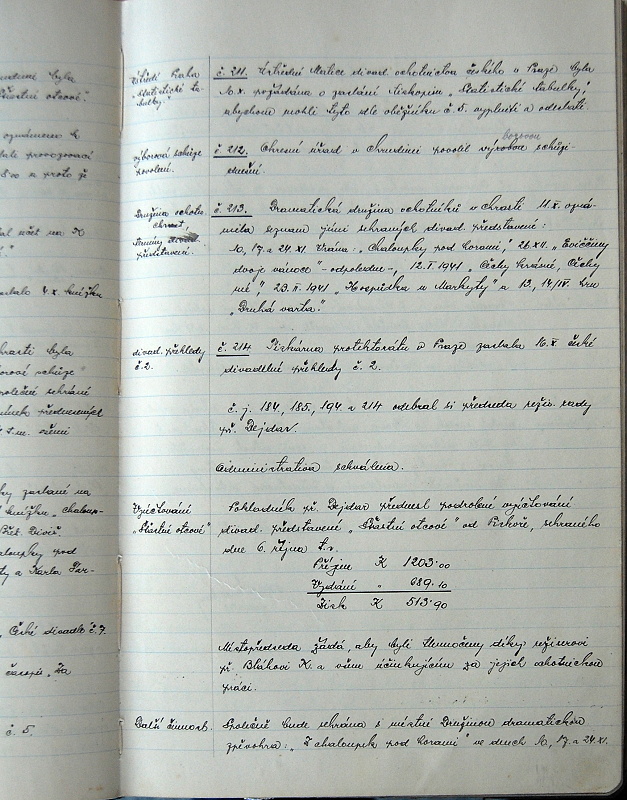 byla
Šťastní otcové".
oznámeno k
provozovací
a proto je
účet na K
4.x. knížku
byla
schůze"
sehrání
přednesl
zaslané na
knížku "Chaloup-
Chaloupky pod
a Karla
"České divadlo č. 7.
časopis "Za
č. 5.
Ústředí Praha
"Statistické ta-
bulky"
č. 211. Ústřední Matice divad. ochotnictva českého v Praze byla
10.x. požádána o zaslání tiskopisu "Statistické tabulky",
abychom mohli tyto dle oběžníku č. 5. vyplniti a odeslati
výborová schůze
povolení.
č. 212. Okresní úřad v Chrudimi povolil výborovou schůzi
dnešní.
Družina ochotn.
Chrast,
seznamy divad.
představení.
č. 213. Dramatická družina ochotníků v Chrasti 11.x. ozná-
mila seznam jimi sehraných divad. představení:
10, 17. a 24. XI. Vrána: "Chaloupky pod horami", 26. XII. "Zvičený
dvoje vánoce" - odpoledne -, 12. I. 1941 "Čechy krásné, Čechy
mé", 23. II. 1941 "Hospůdka u Markyty" a 13., 14/IV. hru
"Druhá varta."
divad. přehledy
č. 2.
č. 214. Tiskárna protektorátu v Praze zaslala 16. X. české
divadelní přehledy č. 2.
č. j. 184, 185, 194 a 214 odebral si předseda režis. rady
př. Dejdar.
Administrativa schválena.
Vyúčtování
"Šťastní otcové"
Pokladník př. Dejdar přednesl podrobné vyúčtování
divad. představení "Šťastní otcové" od Piskoře, sehraného
dne 6. října t.r.
Příjem K 1203·00
Vydání " 689·10
Zisk K 513·90
Místopředseda žádá, aby byli tlumočeny díky režiserovi
př. Bláhovi K. a všem účinkujícím za jejich ochotnickou
práci.
Další činnost.
Společně bude sehrána s místní Družinou dramatickou
zpěvohra: "Z chaloupek pod horami" ve dnech 10, 17. a 24. XI.